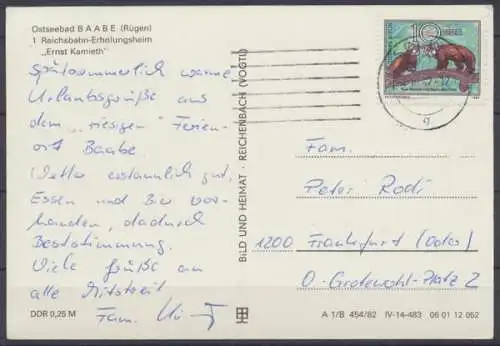 Ostseebad B A A B E (Rügen)
1 Reichsbahn-Erholungsheim
„Ernst Kamieth"
Spätsommerlich warme
Urlaubsgrüße aus
dem „riesigen" Ferien-
ort Baabe.
Wetter erstaunlich gut,
Essen und Bier vor-
handen, dadurch
Beststimmung.
Viele Grüße an
alle Mitstreit
Fam.
DDR 0,25 M
BILD UND HEIMAT · REICHENBACH (VOGTL)
10
Fam.
Peter Rodi
1200 Frankfurt (Oder)
O-Grotewohl-Platz 2
A 1/B 454/82 IV-14-483 06 01 12 052